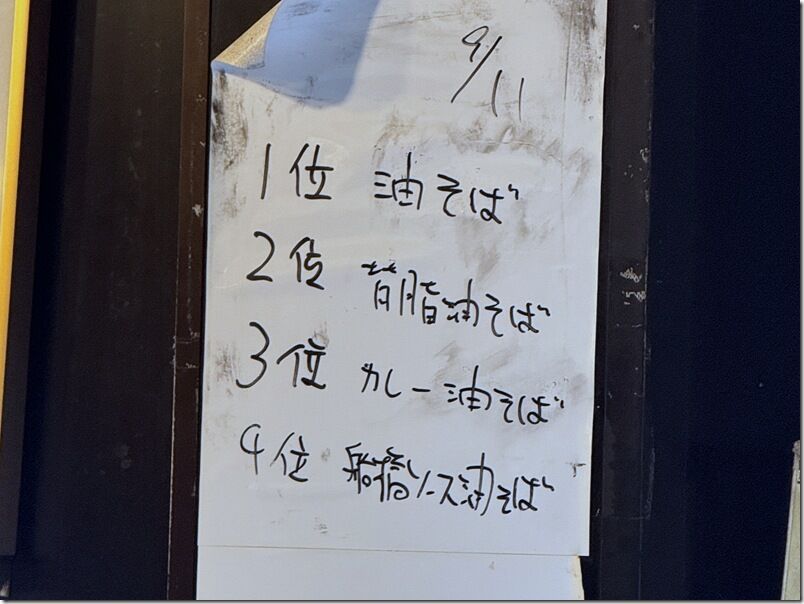 9/11
1位 油そば
2位 背脂油そば
3位 カレー油そば
4位 船橋ソース油そば